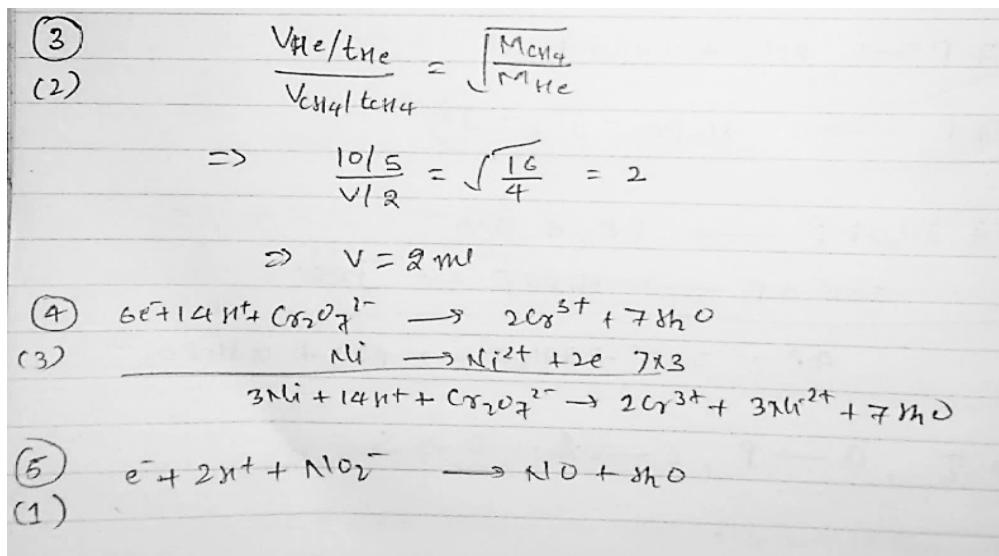 ③ VHe/tHe / VCH4/tCH4 = √MCH4/MHe
(2)
=> 10/5 / V/2 = √16/4 = 2
=> V = 2 ml
④ 6e⁻+14H⁺+ Cr₂O₇²⁻ → 2Cr³⁺ + 7H₂O
(3) Ni → Ni²⁺ +2e ]×3
3Ni + 14H⁺ + Cr₂O₇²⁻ → 2Cr³⁺ + 3Ni²⁺ + 7H₂O
⑤ e⁻ + 2H⁺ + NO₂⁻ → NO + H₂O
(1)